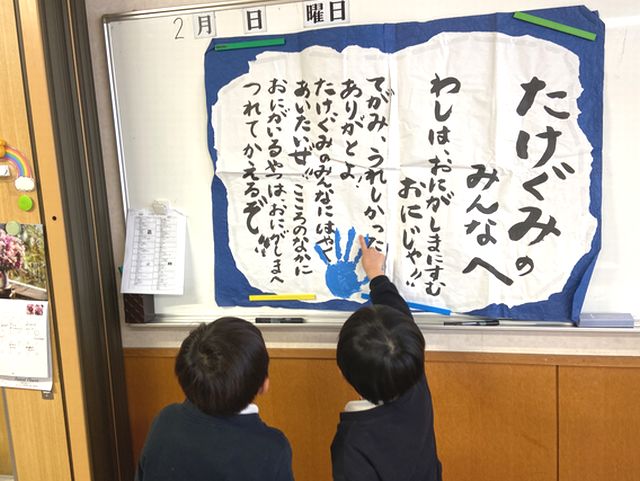 2月 日 曜日
たけぐみの
みんなへ
わしは、おにがしまにすむ
おにじゃ!!
てがみ うれしかった
ありがとよ!
たけぐみのみんなにはやく
あいたいぜ!! こころのなかに
おにがいるやつは、おにがしまへ
つれてかえるぞ!!